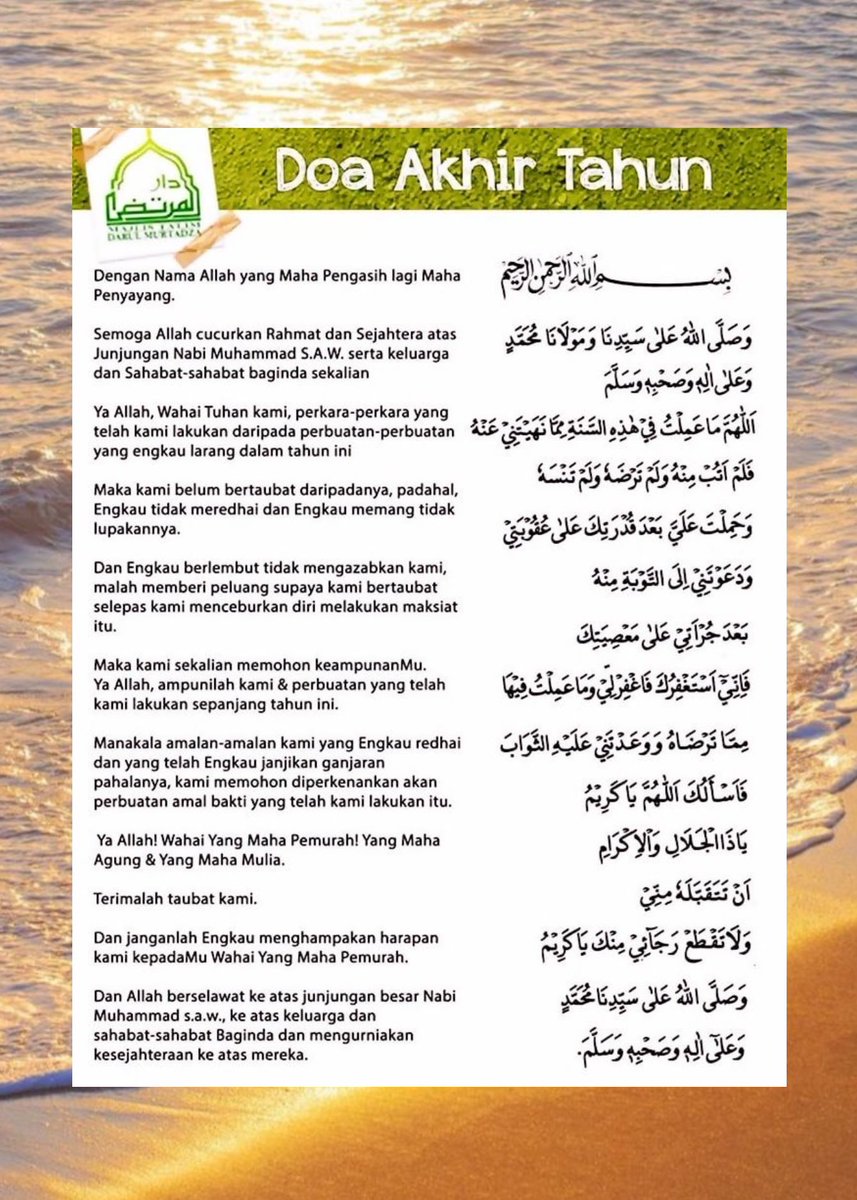 Doa Akhir Tahun
دار
المرتضى
MAJLIS TA'LIM
DARUL MURTADZA
Dengan Nama Allah yang Maha Pengasih lagi Maha
Penyayang.
Semoga Allah cucurkan Rahmat dan Sejahtera atas
Junjungan Nabi Muhammad S.A.W. serta keluarga
dan Sahabat-sahabat baginda sekalian
Ya Allah, Wahai Tuhan kami, perkara-perkara yang
telah kami lakukan daripada perbuatan-perbuatan
yang engkau larang dalam tahun ini
Maka kami belum bertaubat daripadanya, padahal,
Engkau tidak meredhai dan Engkau memang tidak
lupakannya.
Dan Engkau berlembut tidak mengazabkan kami,
malah memberi peluang supaya kami bertaubat
selepas kami menceburkan diri melakukan maksiat
itu.
Maka kami sekalian memohon keampunanMu.
Ya Allah, ampunilah kami & perbuatan yang telah
kami lakukan sepanjang tahun ini.
Manakala amalan-amalan kami yang Engkau redhai
dan yang telah Engkau janjikan ganjaran
pahalanya, kami memohon diperkenankan akan
perbuatan amal bakti yang telah kami lakukan itu.
Ya Allah! Wahai Yang Maha Pemurah! Yang Maha
Agung & Yang Maha Mulia.
Terimalah taubat kami.
Dan janganlah Engkau menghampakan harapan
kami kepadaMu Wahai Yang Maha Pemurah.
Dan Allah berselawat ke atas junjungan besar Nabi
Muhammad s.a.w., ke atas keluarga dan
sahabat-sahabat Baginda dan mengurniakan
kesejahteraan ke atas mereka.
بِسْمِ اللهِ الرَّحْمٰنِ الرَّحِيْمِ
وَصَلَّى اللهُ عَلٰى سَيِّدِنَا وَمَوْلَانَا مُحَمَّدٍ
وَعَلٰى اٰلِهٖ وَصَحْبِهٖ وَسَلَّمَ
اَللّٰهُمَّ مَا عَمِلْتُ فِيْ هٰذِهِ السَّنَةِ مِمَّا نَهَيْتَنِيْ عَنْهُ
فَلَمْ اَتُبْ مِنْهُ وَلَمْ تَرْضَهُ وَلَمْ تَنْسَهُ
وَحَمِلْتَ عَلَيَّ بَعْدَ قُدْرَتِكَ عَلٰى عُقُوْبَتِيْ
وَدَعَوْتَنِيْ اِلَى التَّوْبَةِ مِنْهُ
بَعْدَ جُرْاَتِيْ عَلٰى مَعْصِيَتِكَ
فَاِنِّيْٓ اَسْتَغْفِرُكَ فَاغْفِرْلِيْ وَمَا عَمِلْتُ فِيْهَا
مِمَّا تَرْضَاهُ وَوَعَدْتَنِيْ عَلَيْهِ الثَّوَابَ
فَاَسْأَلُكَ اَللّٰهُمَّ يَا كَرِيْمُ
يَا ذَا الْجَلَالِ وَالْاِكْرَامِ
اَنْ تَتَقَبَّلَهُ مِنِّيْ
وَلَا تَقْطَعْ رَجَآئِيْ مِنْكَ يَا كَرِيْمُ
وَصَلَّى اللهُ عَلٰى سَيِّدِنَا مُحَمَّدٍ
وَعَلٰٓى اٰلِهٖ وَصَحْبِهٖ وَسَلَّمَ.